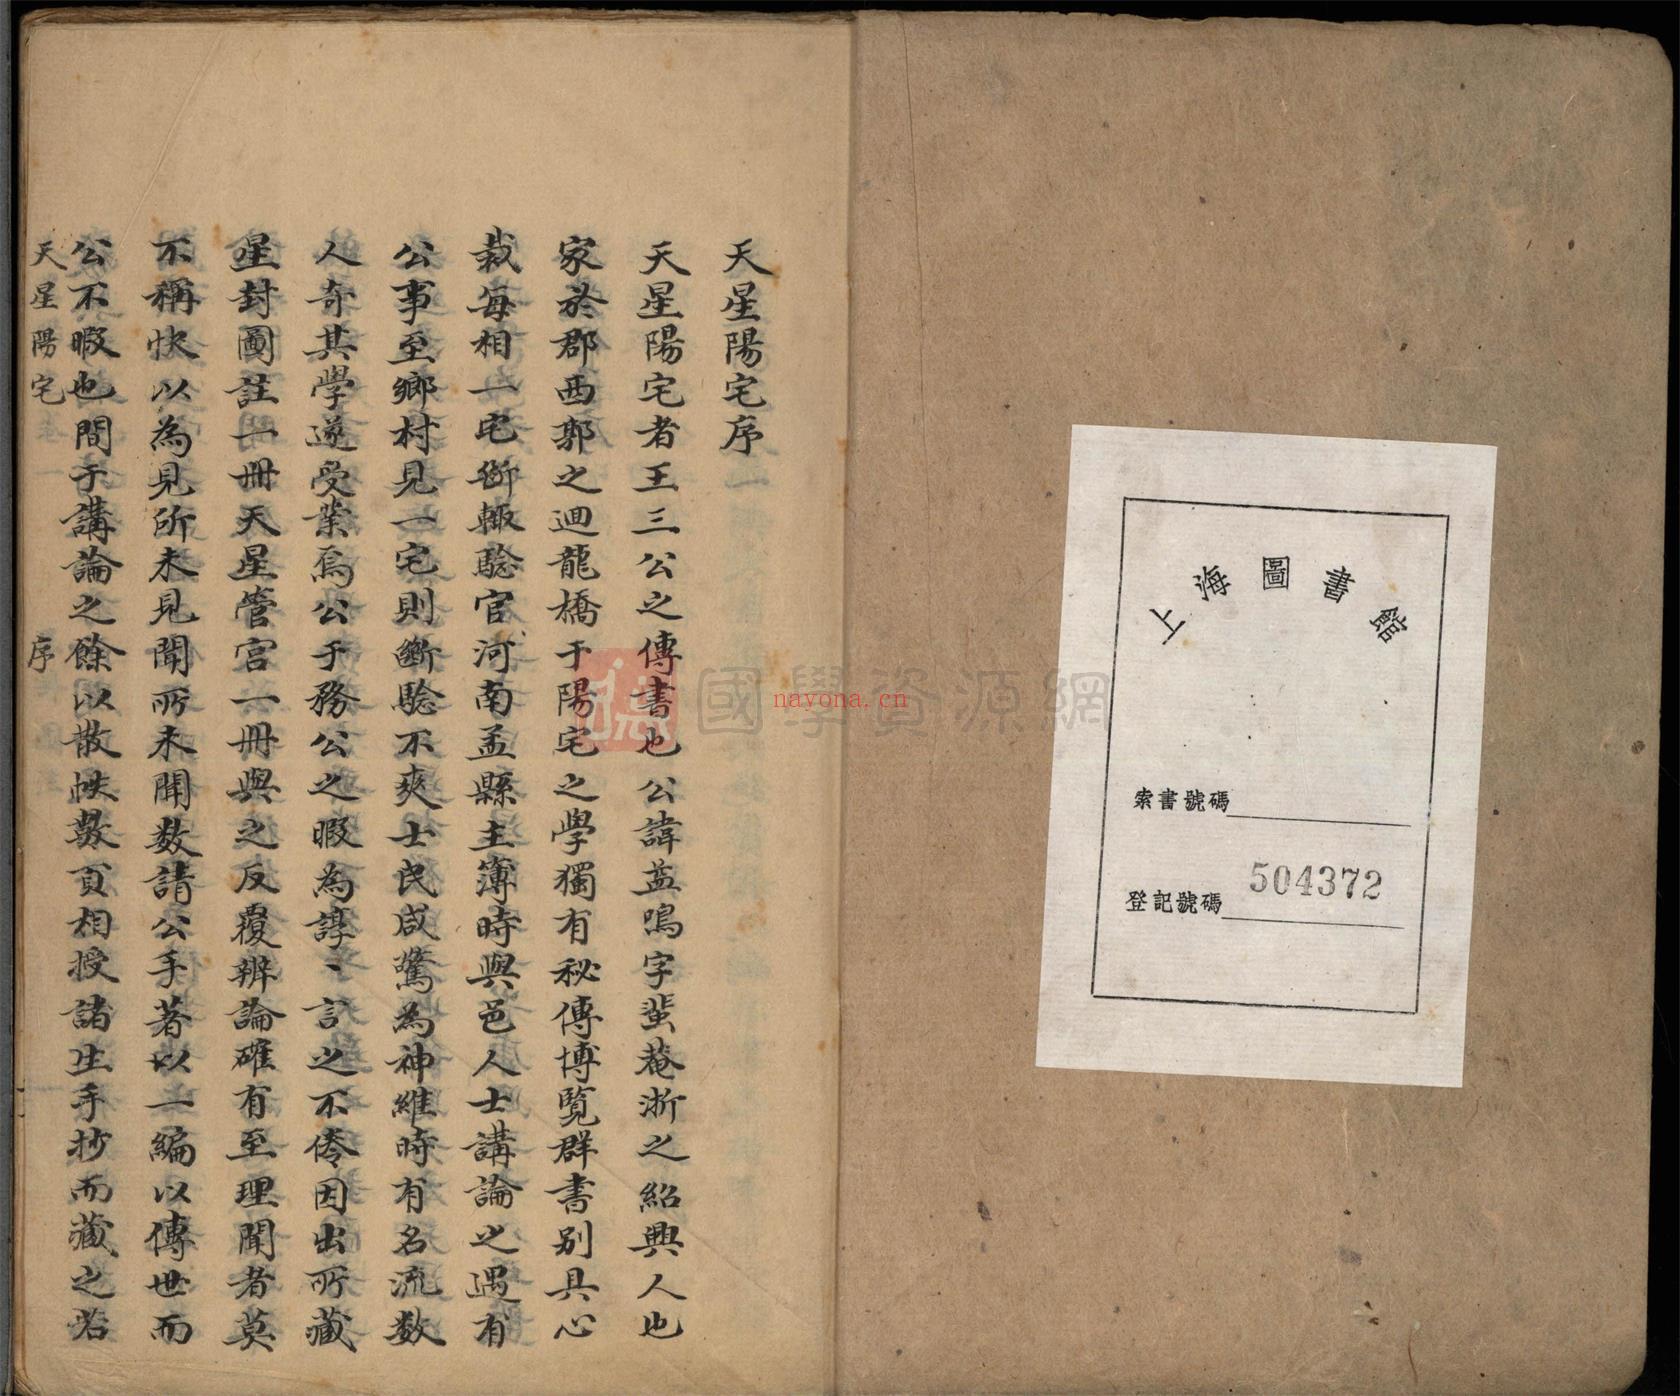 上海圖書館
索書號碼
登記號碼 504372
天星陽宅序
天星陽宅者王三公之傳書也公諱盖鳴字蜚菴浙之紹興人也
家於郡西郭之迴龍橋于陽宅之學獨有秘傳博覽群書別具心
裁每相一宅断輙騐官河南孟縣主簿時與邑人士講論之遇有
公事至鄉村見一宅則斷騐不爽士民咸驚為神維時有名流数
人奇其學遂受業焉公于務公之暇為諄、言之不倦因出所藏
星封圖註一冊天星管宮一冊與之反覆辨論確有至理聞者莫
不稱快以為見所未見聞所未聞数請公手著以一編以傳世而
公不暇也間于講論之餘以散帙数頁相授諸生手抄而藏之若
天星陽宅 序
國學資源網
nayona.cn